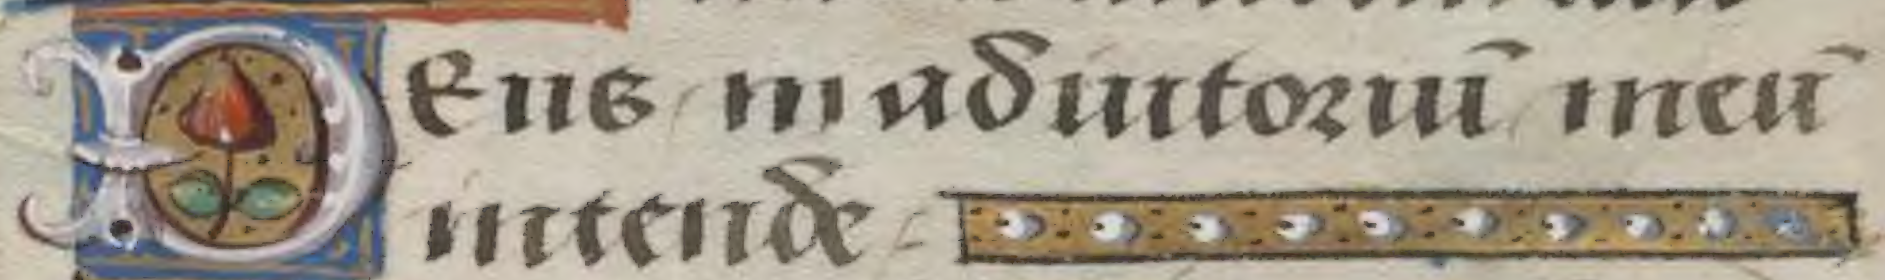 Deus in adiutoriū meū
intende